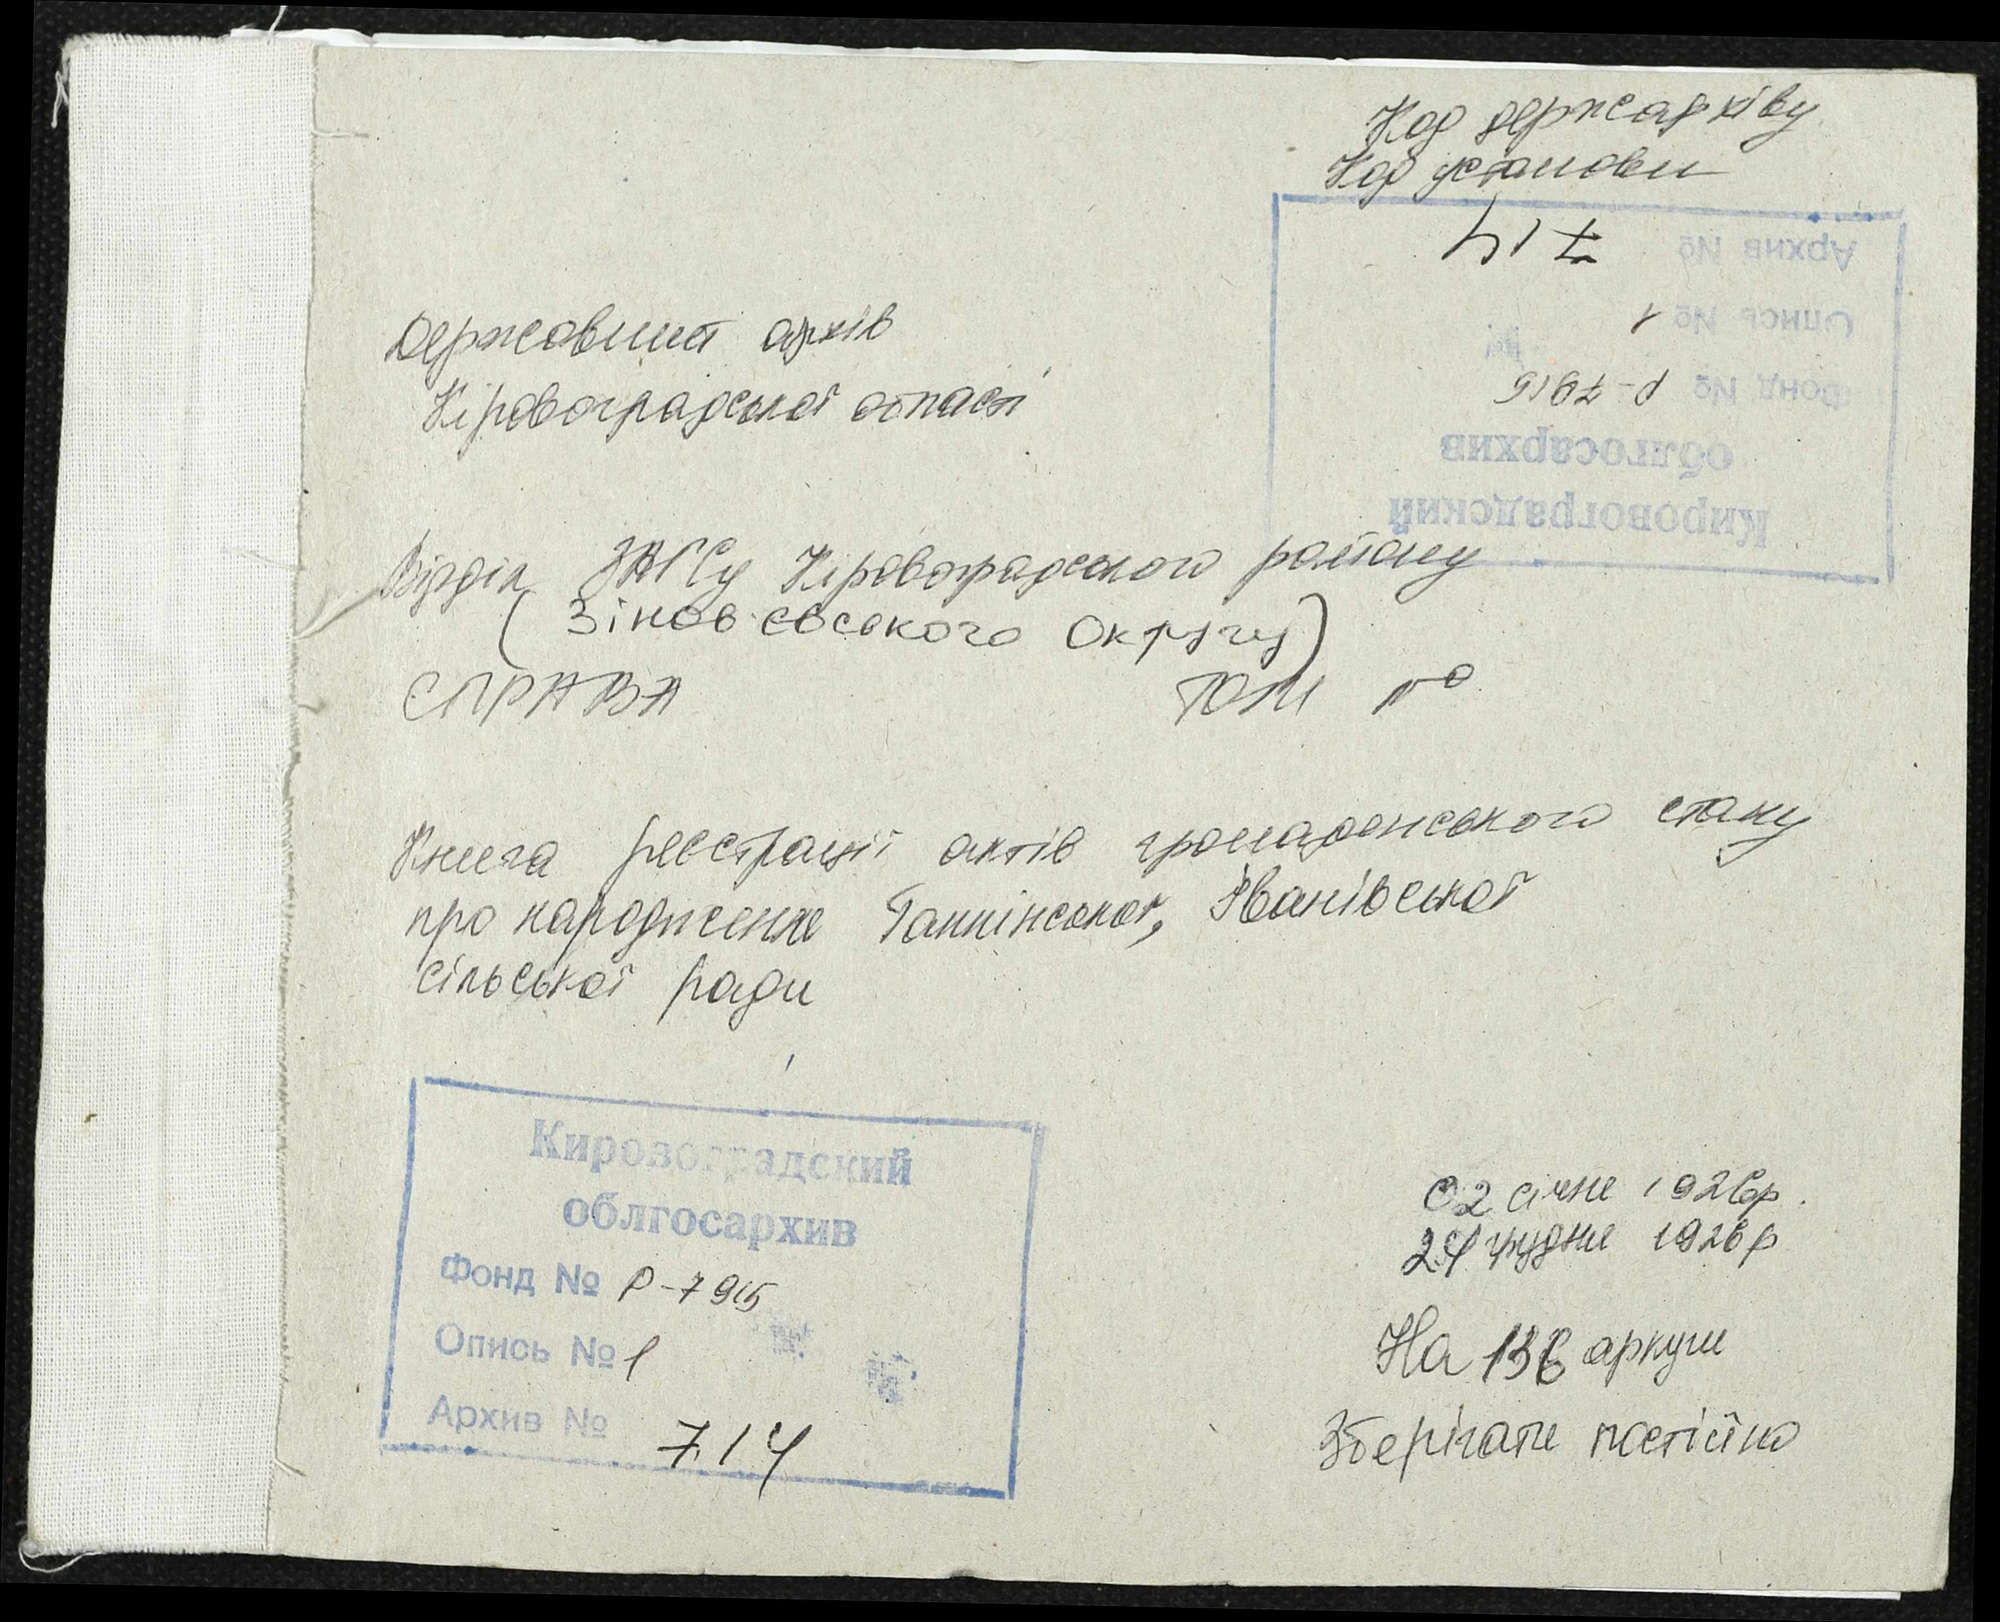 Код держархіву
Код установи
Архив № 714
Опись № 1
Фонд № Р-7915
облгосархив
Кировоградский
Державний архів
Кіровоградської області
Відділ ЗАГСу Кіровоградського району
(Зінов'євського округу)
СПРАВА ТОМ №
Книга реєстрації актів громадянського стану
про народження Ганнінської, Іванівської
сільської ради
Кировоградский
облгосархив
Фонд № Р-7915
Опись № 1
Архив № 714
02 січня 1926р.
24 грудня 1926р
На 136 аркуш
Зберігати постійно